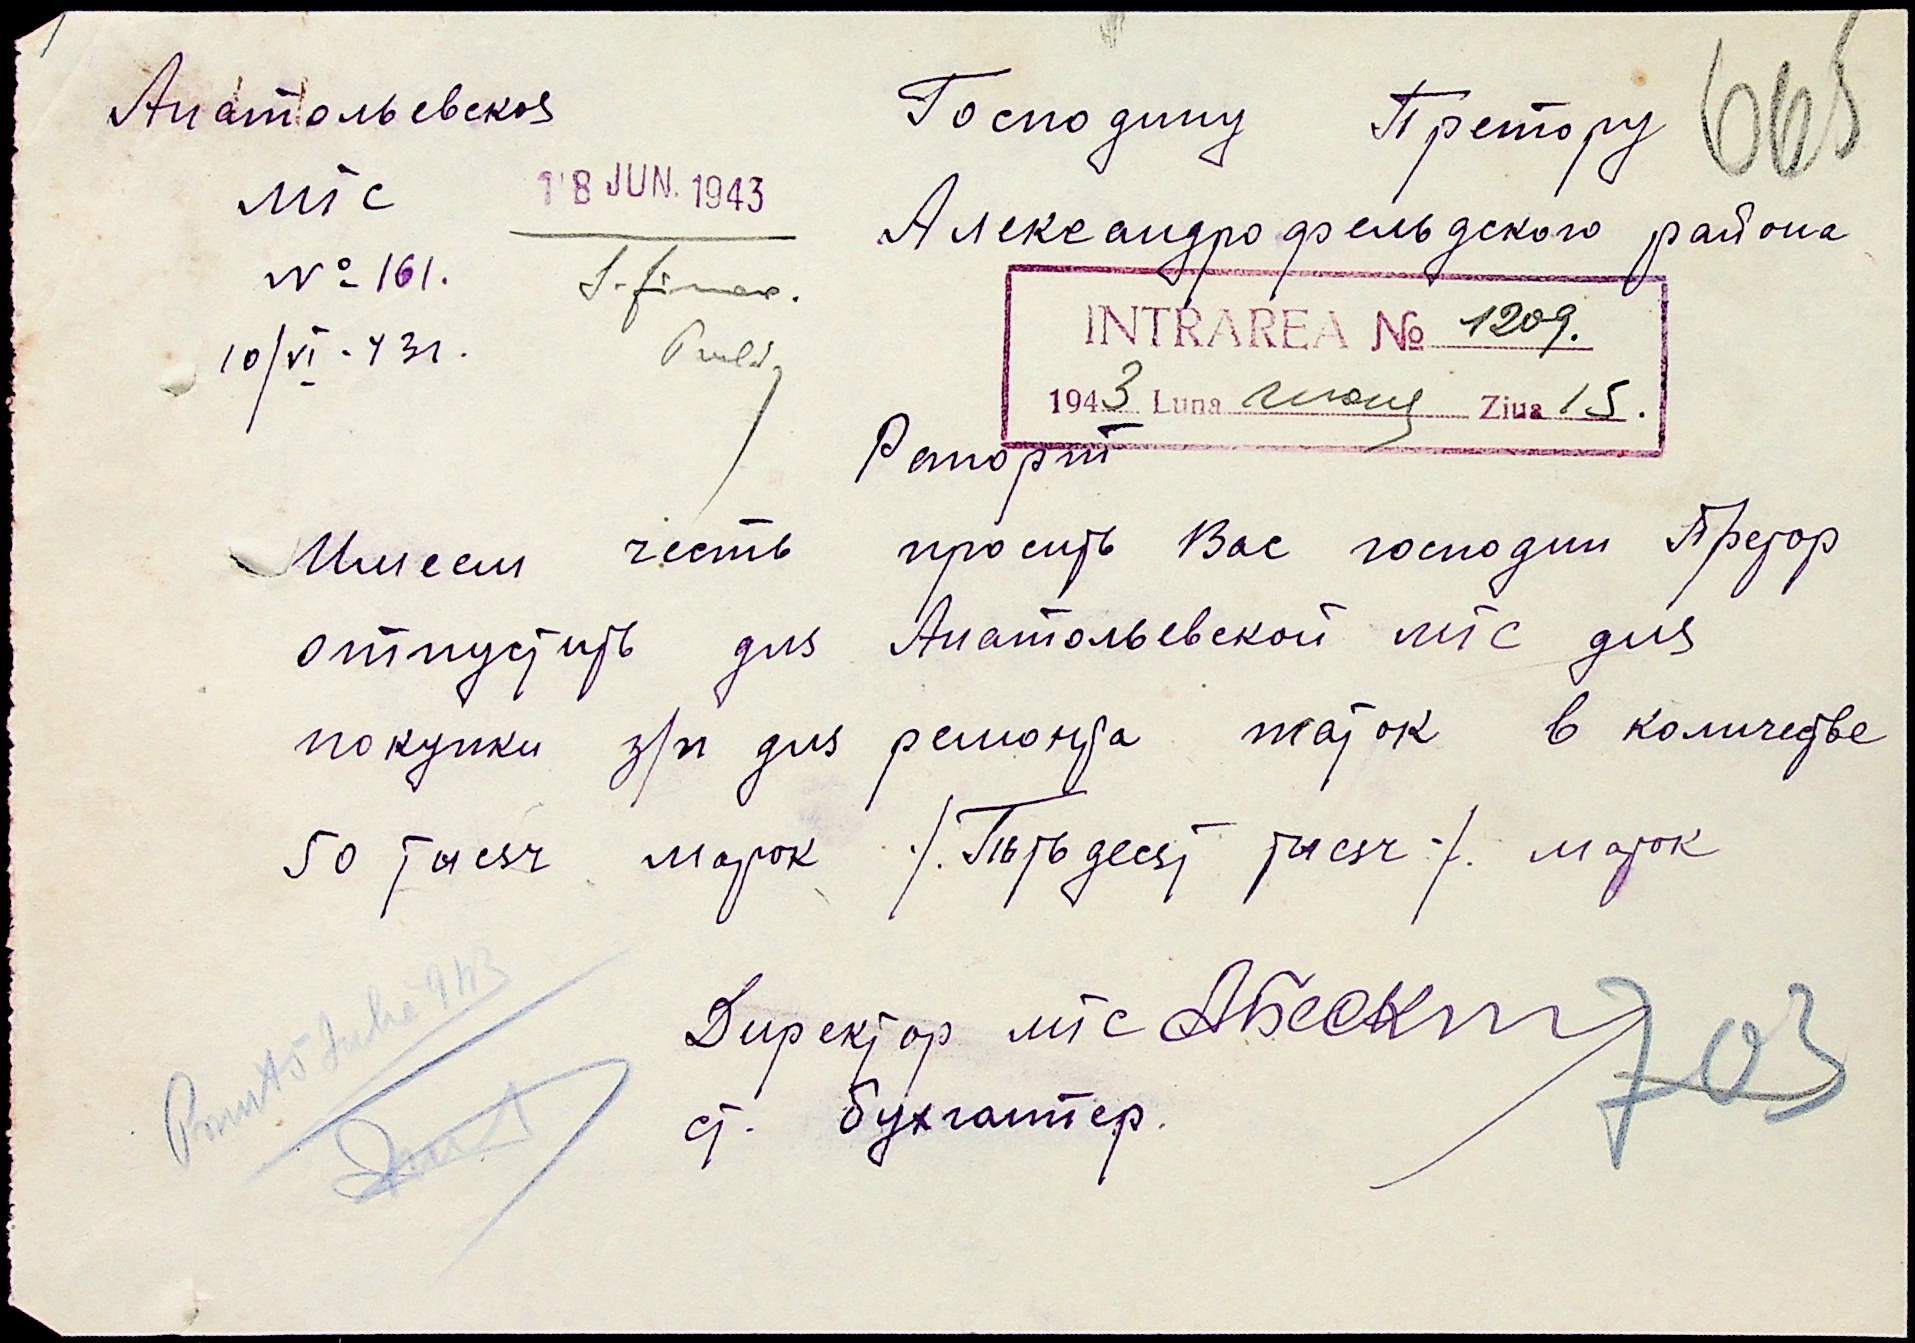 Анатольевская
МТС
№ 161.
10/VI-43г.
18 JUN. 1943
S. finar.
665
Господину Претору
Александрофельдского района
INTRAREA № 1209.
1943 Luna июня Ziua 15.
Рапорт
Имеем честь просить Вас господин Претор
отпустить для Анатольевской МТС для
покупки з/п для ремонта маток в количестве
50 тысяч марок /. Пятьдесят тысяч ./. марок
Директор МТС
ст. Бухгалтер.
703